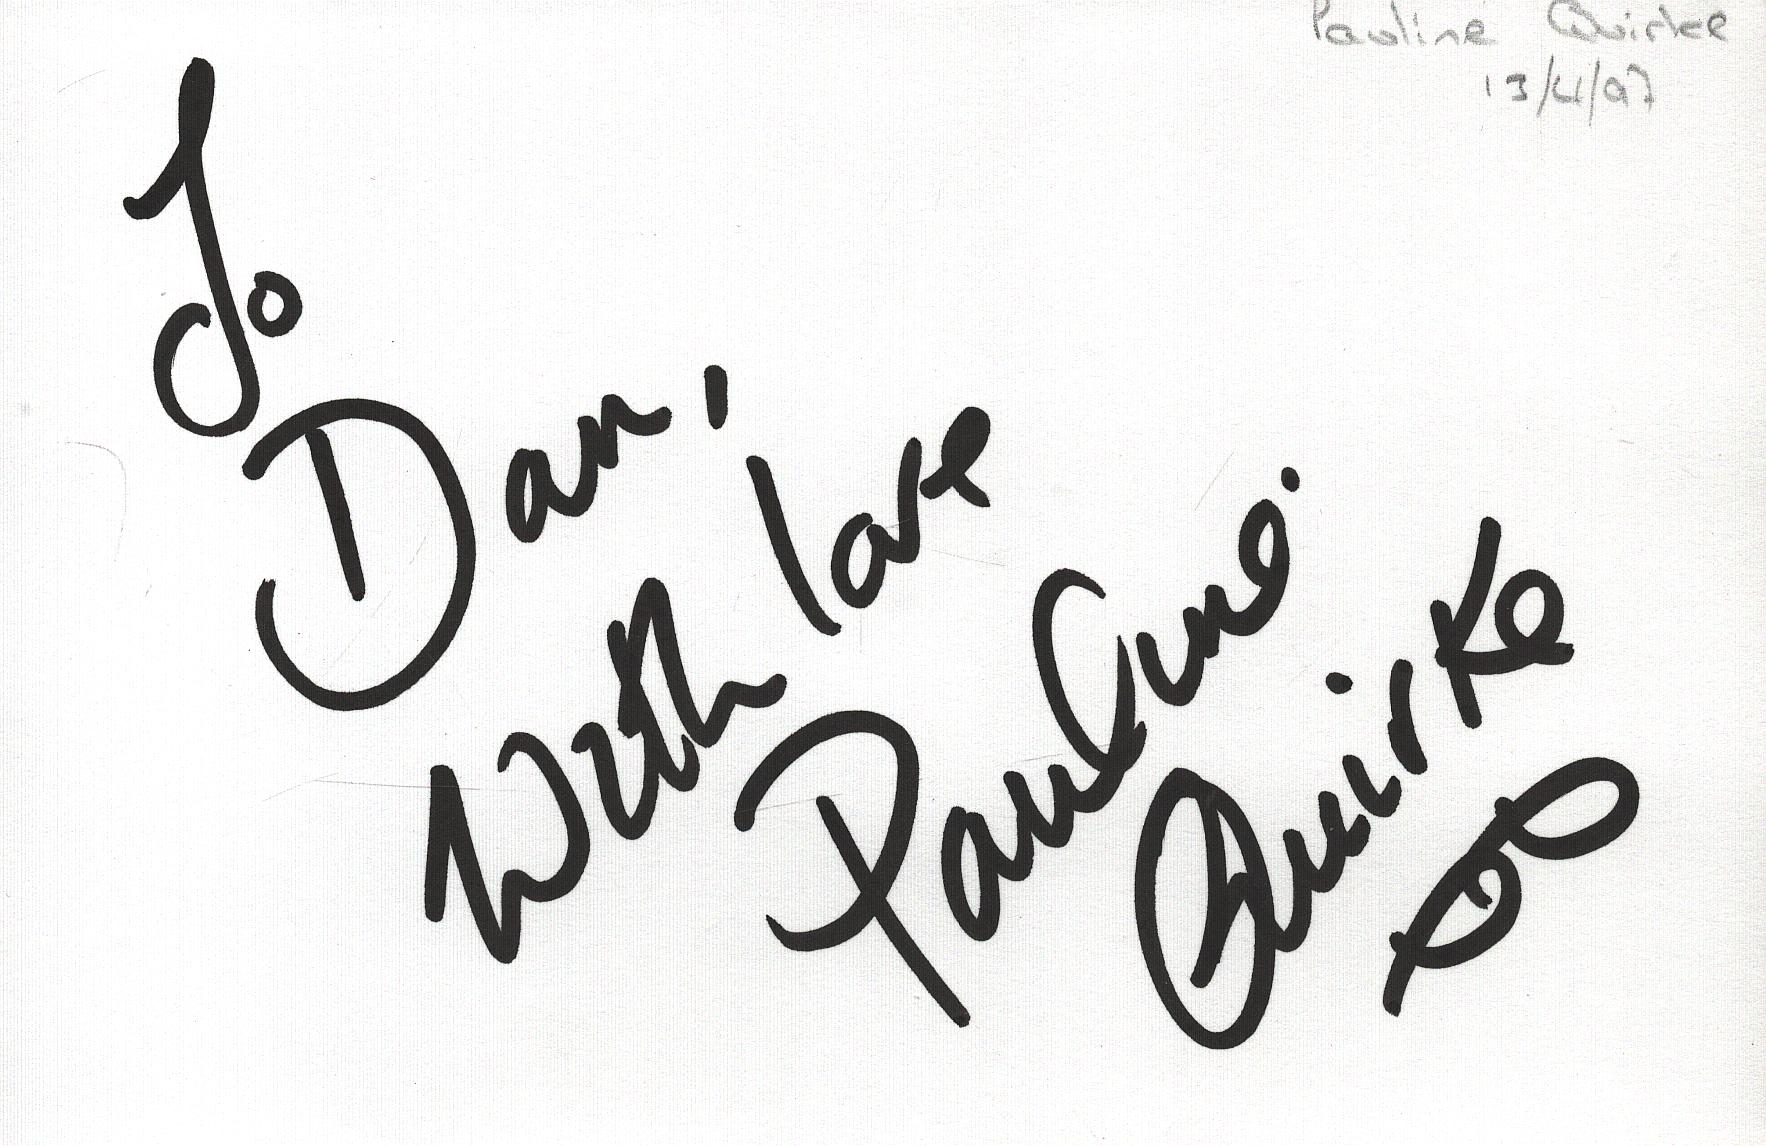 Pauline Quirke
13/4/97
To
Dan,
With love
Pauline
Quirke